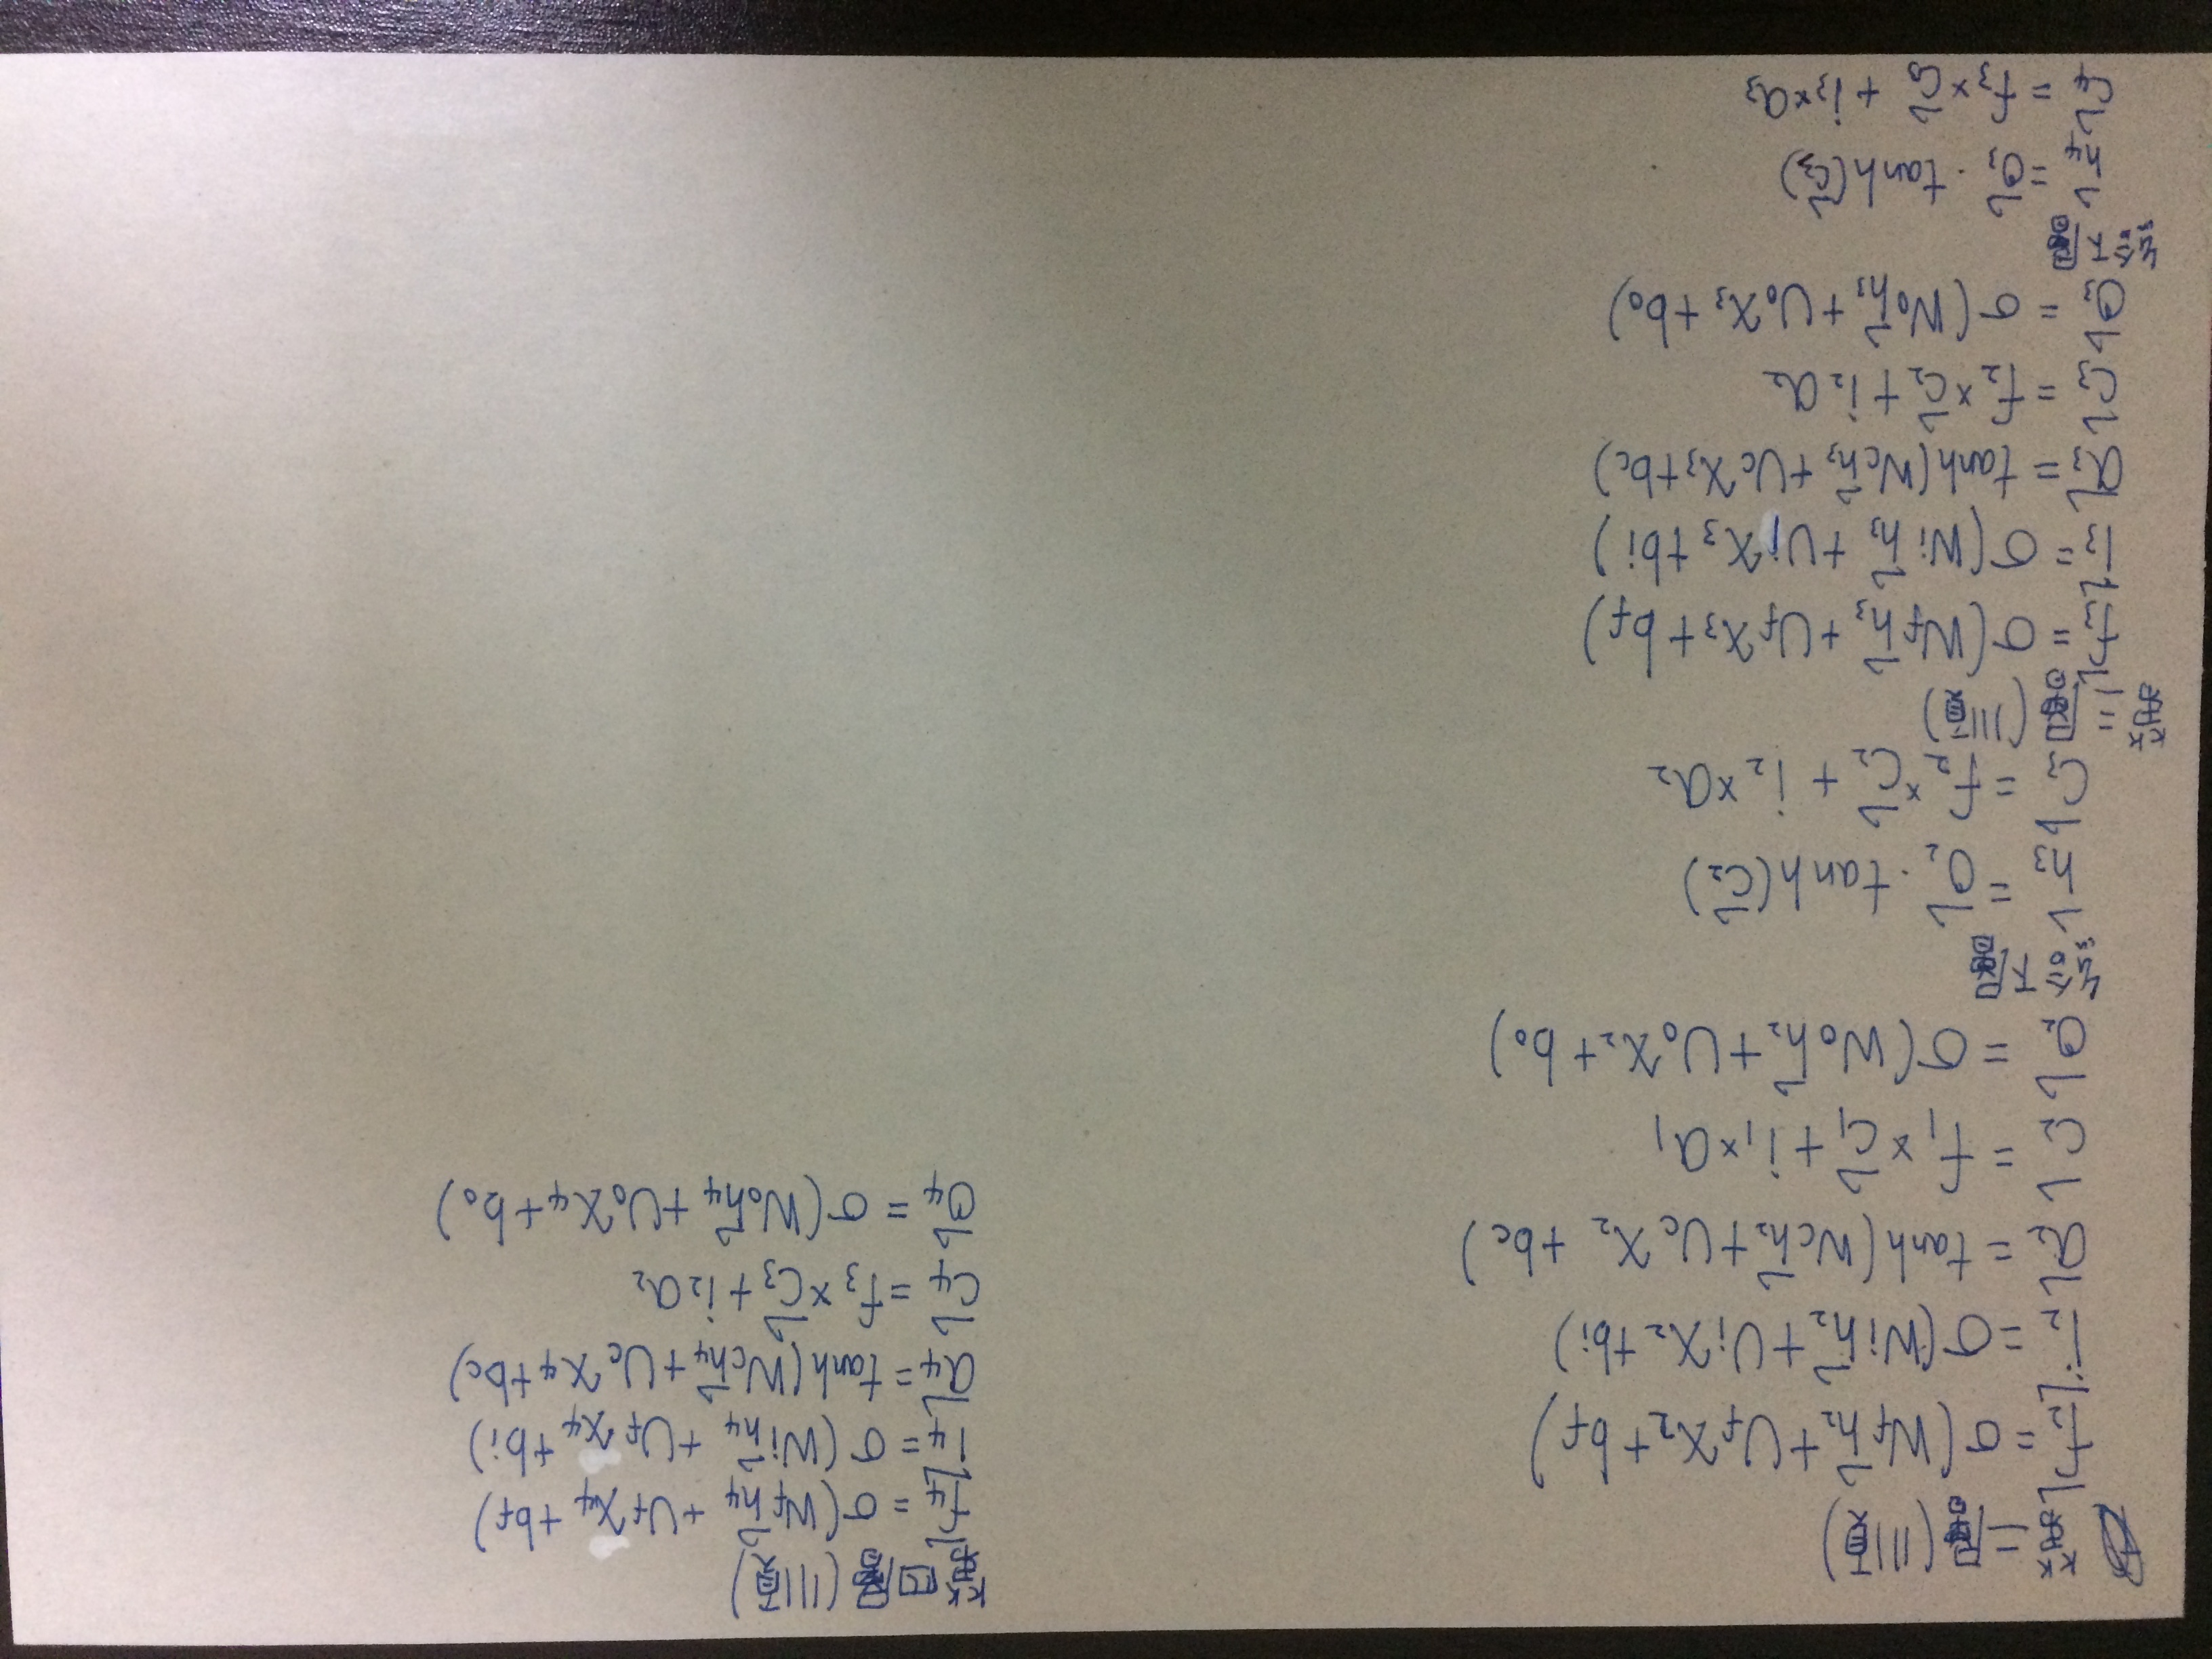 第二層(順)
f⃗₂ = σ(Wf h⃗₂ + Uf X₂ + bf)
i⃗₂ = σ(Wi h⃗₂ + Ui X₂ + bi)
a⃗₂ = tanh(Wc h⃗₂ + Uc X₂ + bc)
c⃗₂ = f₁ × c⃗₁ + i₁ × a₁
o⃗₂ = σ(Wo h⃗₂ + Uo X₂ + bo)
給下層
h⃗₃ = o⃗₂ · tanh(c⃗₂)
c⃗₃ = f₂ × c⃗₂ + i₂ × a₂
第三層(順)
f⃗₃ = σ(Wf h⃗₃ + Uf X₃ + bf)
i⃗₃ = σ(Wi h⃗₃ + Ui X₃ + bi)
a⃗₃ = tanh(Wc h⃗₃ + Uc X₃ + bc)
c⃗₃ = f₂ × c⃗₂ + i₂ a₂
o⃗₃ = σ(Wo h⃗₃ + Uo X₃ + bo)
給下層
h⃗₄ = o⃗₃ · tanh(c⃗₃)
c⃗₄ = f₃ × c⃗₃ + i₃ × a₃
第四層(順)
f⃗₄ = σ(Wf h⃗₄ + Uf X₄ + bf)
i⃗₄ = σ(Wi h⃗₄ + Uf X₄ + bi)
a⃗₄ = tanh(Wc h⃗₄ + Uc X₄ + bc)
c⃗₄ = f₃ × c⃗₃ + i₂ a₂
o⃗₄ = σ(Wo h⃗₄ + Uo X₄ + bo)